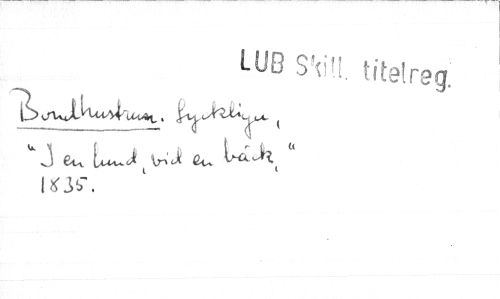 LUB Skill. titelreg.
Bondhustrun. Lyckliga,
"I en lund, vid en bäck,"
1835.